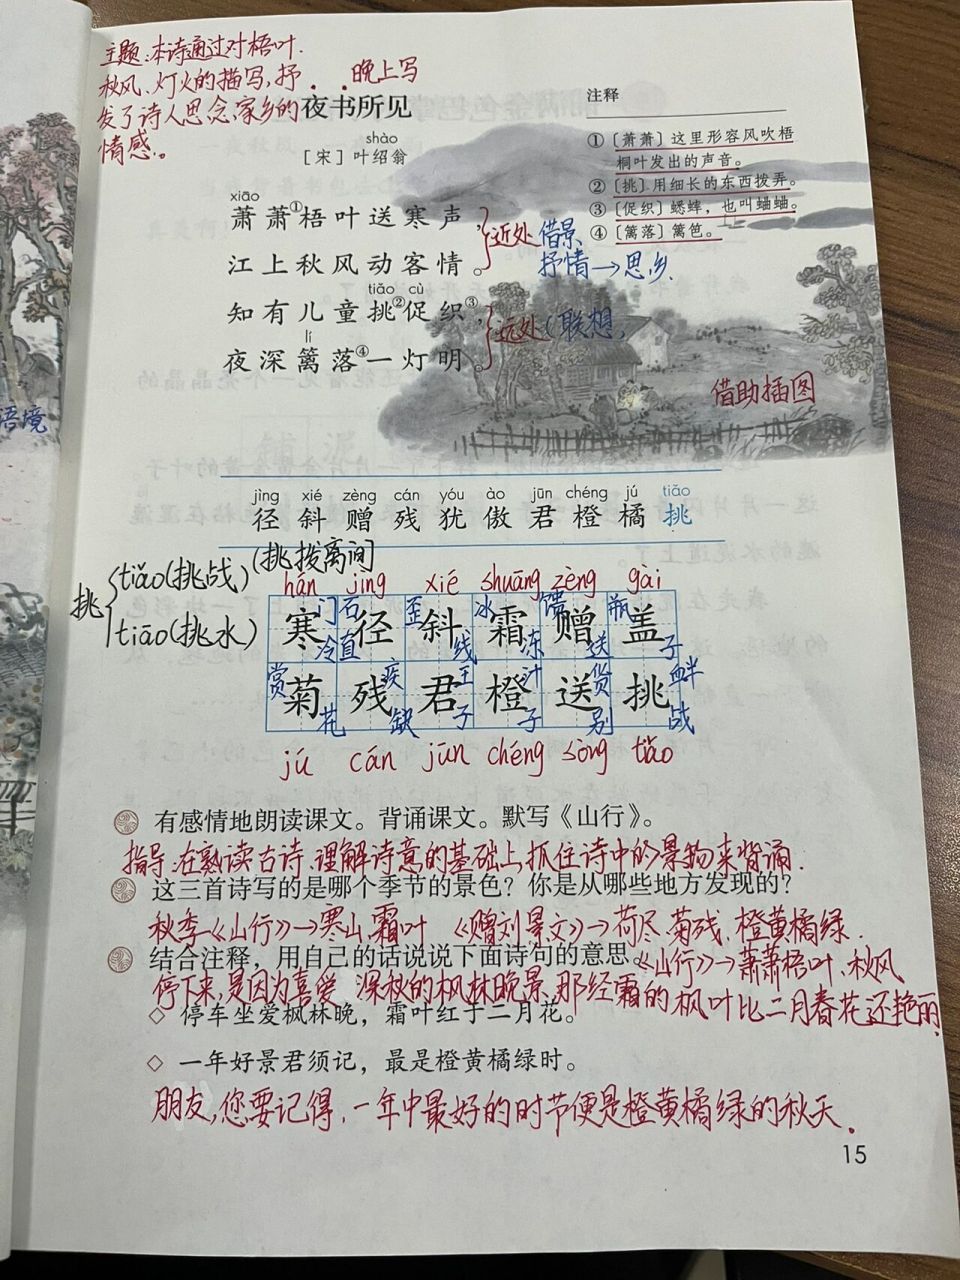 主题:本诗通过对梧叶.
秋风、灯火的描写,抒
发了诗人思念家乡的
情感。
晚上写
夜书所见
shào
[宋]叶绍翁
注释
①〔萧萧〕这里形容风吹梧
桐叶发出的声音。
②〔挑〕用细长的东西拨弄。
③〔促织〕蟋蟀,也叫蛐蛐。
④〔篱落〕篱笆。
xiāo
萧萧①梧叶送寒声,
江上秋风动客情。
近处 借景
抒情→思乡
tiǎo cù
知有儿童挑②促织③,
lí
夜深篱落④一灯明。
远处(联想,
借助插图
语境
jìng xié zèng cán yóu ào jūn chéng jú tiǎo
径 斜 赠 残 犹 傲 君 橙 橘 挑
挑
tiǎo(挑战)(挑拨离间)
tiāo(挑水)
hán jìng xié shuāng zèng gài
寒 径 斜 霜 赠 盖
门 石 歪 冰 馈 瓶
冷 直 线 冻 送 子
菊 残 君 橙 送 挑
赏 疾 王 汁 货 衅
花 缺 子 子 别 战
jú cán jūn chéng sòng tiǎo
有感情地朗读课文。背诵课文。默写《山行》。
指导:在熟读古诗.理解诗意的基础上,抓住诗中的景物来背诵.
这三首诗写的是哪个季节的景色?你是从哪些地方发现的?
秋季《山行》→寒山,霜叶 《赠刘景文》→荷尽.菊残、橙黄橘绿.
结合注释,用自己的话说说下面诗句的意思。
《山行》→萧萧梧叶、秋风
停下来,是因为喜爱 深秋的枫林晚景,那经霜的枫叶比二月春花还艳丽.
◇ 停车坐爱枫林晚,霜叶红于二月花。
◇ 一年好景君须记,最是橙黄橘绿时。
朋友,您要记得,一年中最好的时节便是橙黄橘绿的秋天.
15